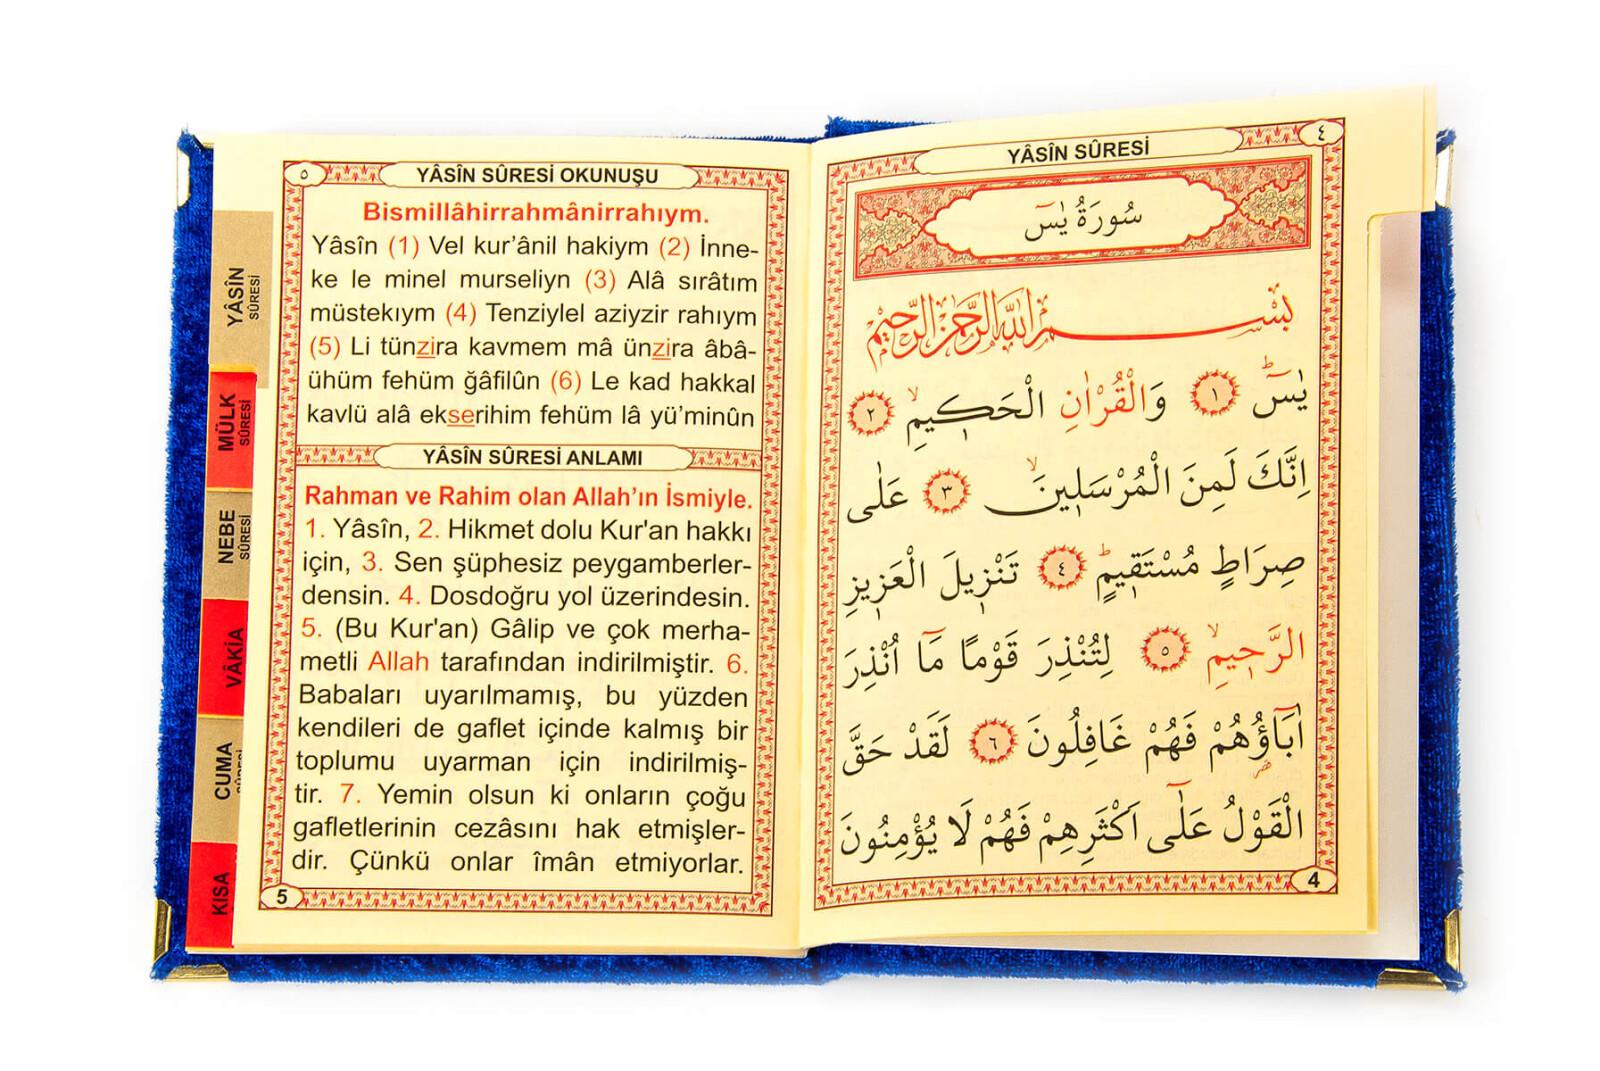 YÂSÎN SÛRESİ
٤
سُورَةُ يٰسٓ
بِسْمِ اللّٰهِ الرَّحْمٰنِ الرَّحِيمِ
يٰسٓ ١ وَالْقُرْاٰنِ الْحَكِيمِ ٢
اِنَّكَ لَمِنَ الْمُرْسَلِينَ ٣ عَلٰى
صِرَاطٍ مُسْتَقِيمٍ ٤ تَنْزِيلَ الْعَزِيزِ
الرَّحِيمِ ٥ لِتُنْذِرَ قَوْمًا مَٓا اُنْذِرَ
اٰبَٓاؤُهُمْ فَهُمْ غَافِلُونَ ٦ لَقَدْ حَقَّ
الْقَوْلُ عَلٰٓى اَكْثَرِهِمْ فَهُمْ لَا يُؤْمِنُونَ
4
٥
YÂSÎN SÛRESİ OKUNUŞU
Bismillâhirrahmânirrahıym.
Yâsîn (1) Vel kur’ânil hakiym (2) İnne-
ke le minel murseliyn (3) Alâ sırâtım
müstekıym (4) Tenziylel aziyzir rahıym
(5) Li tünzira kavmem mâ ünzira âbâ-
ühüm fehüm ğâfilûn (6) Le kad hakkal
kavlü alâ ekserihim fehüm lâ yü’minûn
YÂSÎN SÛRESİ ANLAMI
Rahman ve Rahim olan Allah’ın İsmiyle.
1. Yâsîn, 2. Hikmet dolu Kur'an hakkı
için, 3. Sen şüphesiz peygamberler-
densin. 4. Dosdoğru yol üzerindesin.
5. (Bu Kur'an) Gâlip ve çok merha-
metli Allah tarafından indirilmiştir. 6.
Babaları uyarılmamış, bu yüzden
kendileri de gaflet içinde kalmış bir
toplumu uyarman için indirilmiş-
tir. 7. Yemin olsun ki onların çoğu
gafletlerinin cezâsını hak etmişler-
dir. Çünkü onlar îmân etmiyorlar.
5
YÂSÎN
SÛRESİ
MÜLK
SÛRESİ
NEBE
SÛRESİ
VÂKIA
CUMA
SÛRESİ
KISA